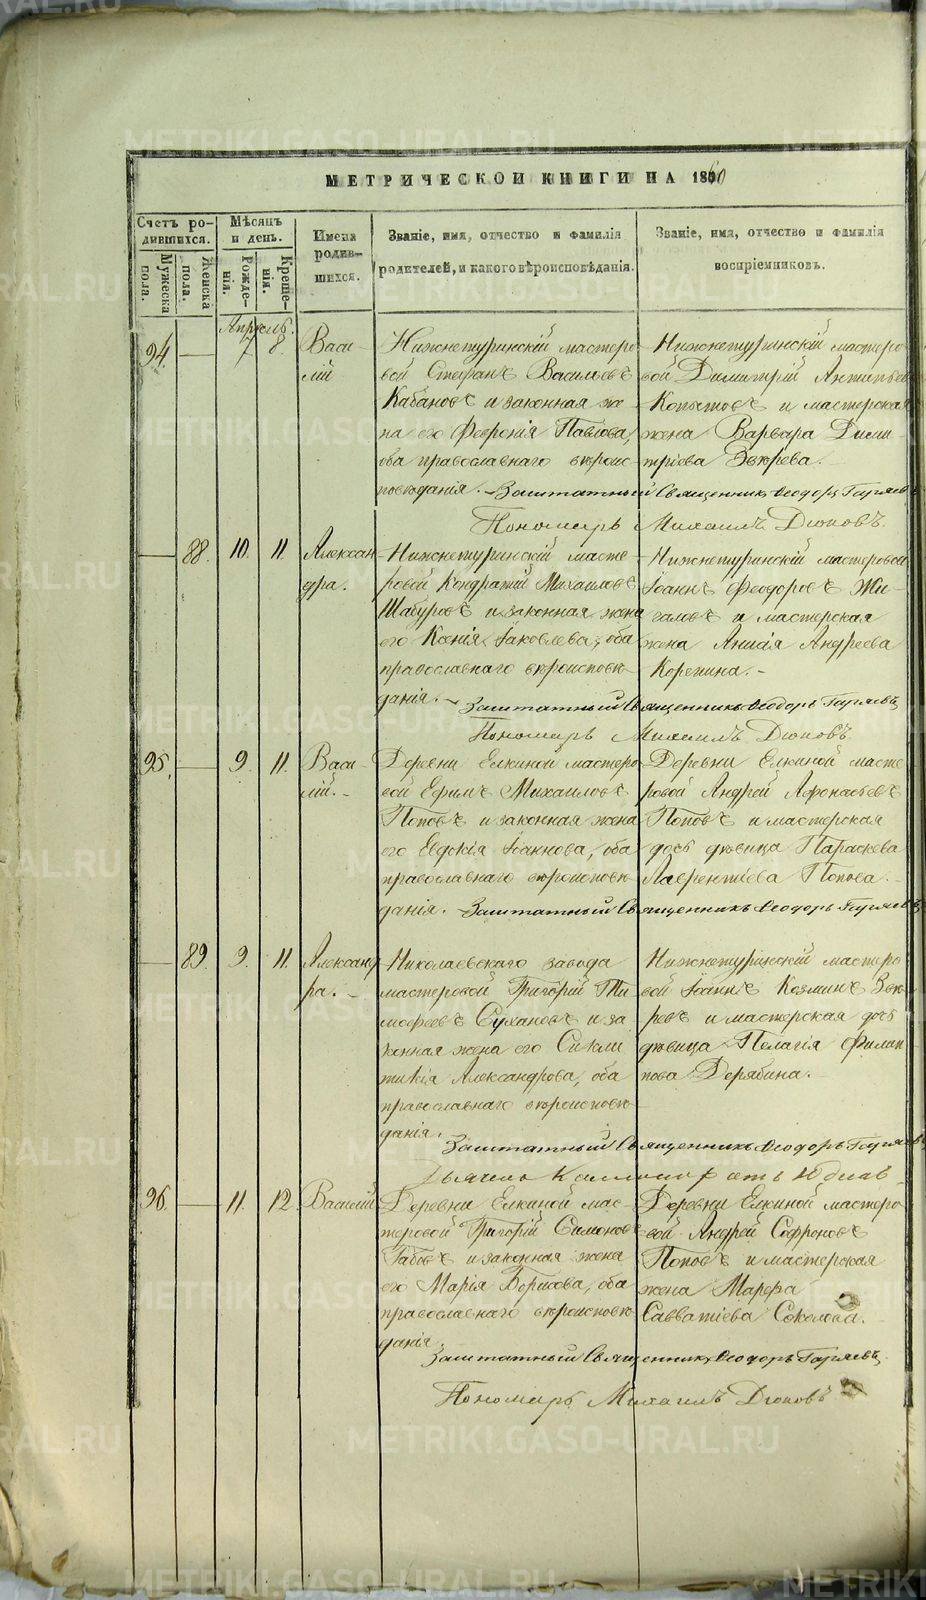 МЕТРИЧЕСКОЙ КНИГИ НА 1860
Счетъ ро-
дившихся.
Мужеска пола.
Женска пола.
Мѣсяцъ
и день.
Рожде-
нія.
Креще-
нія.
Имена
родив-
шихся.
Званіе, имя, отчество и фамилія
родителей, и какого вѣроисповѣданія.
Званіе, имя, отчество и фамилія
воспріемниковъ.
Апрѣль.
94. — 7 8.
Васи-
лій
Нижнетуринскій мастеро-
вой Стефанъ Васильевъ
Кабановъ и законная же-
на его Феврония Павлова,
оба православнаго вѣроис-
повѣданія. —
Нижнетуринскій мастеро-
вой Димитрій Антипьевъ
Копытовъ и мастерская
жена Варвара Дими-
тріева Звѣрева. —
Заштатный Священникъ Ѳеодоръ
Пономарь Михаилъ Дюковъ.
— 88. 10. 11.
Алексан-
дра.
Нижнетуринскій масте-
ровой Кондратій Михаиловъ
Шабуровъ и законная жена
его Ксенія Іаковлева, оба
православнаго вѣроисповѣ-
данія. —
Нижнетуринскій мастеровой
Іоаннъ Феодоровъ Жи-
галовъ и мастерская
жена Анисія Андреева
Корепина. —
Заштатный Священникъ Ѳеодоръ
Пономарь Михаилъ Дюковъ
95. — 9. 11.
Васи-
лій. —
Деревни Елкиной мастеро-
вой Ефимъ Михаиловъ
Поповъ и законная жена
его Евдокія Іоаннова, оба
православнаго вѣроисповѣ-
данія.
Деревни Елкиной масте-
ровой Андрей Афонасьевъ
Поповъ и мастерская
дочь дѣвица Параскева
Лаврентіева Попова. —
Заштатный Священникъ Ѳеодоръ
— 89. 9. 11.
Александ-
ра. —
Николаевскаго завода
мастеровой Григорій Ти-
мофеевъ Сухановъ и за-
конная жена его Сикли-
тикія Александрова, оба
православнаго вѣроисповѣ-
данія.
Нижнетуринскій мастеро-
вой Іоаннъ Козминъ Звѣ-
ревъ и мастерская дочь
дѣвица Пелагія Филип-
пова Дерябина. —
Заштатный Священникъ Ѳеодоръ
96. — 11. 12
Василій
Деревни Елкиной мас-
теровой Григорій Симоновъ
Габовъ и законная жена
его Марія Борисова, оба
православнаго вѣроисповѣ-
данія.
Деревни Елкиной мастеро-
вой Андрей Софроновъ
Поповъ и мастерская
жена Марфа
Савватіева Соколова.
Заштатный Священникъ Ѳеодоръ
Пономарь Михаилъ Дюковъ
METRIKI.GASO-URAL.RU